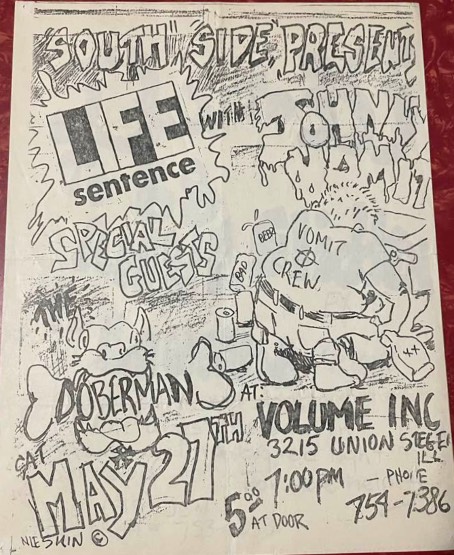 SOUTH SIDE PRESENT
LIFE
sentence
WITH
JOHNNY
VOMIT
SPECIAL
GUESTS
BEER
VOMIT
CREW
THE
DOBERMANS
AT:
VOLUME INC
3215 UNION STEGER
ILL.
SAT
MAY 27TH
7:00 PM
— PHONE
754-7386
5.00 AT DOOR